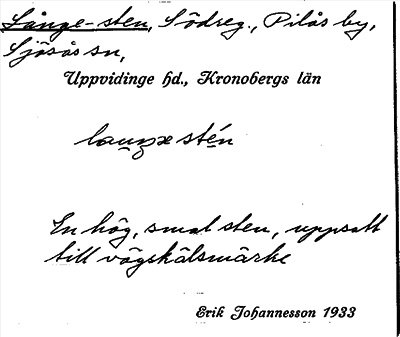 Långe-sten, Södreg., Pilås by,
Sjösås sn,
Uppvidinge hd., Kronobergs län
En hög, smal sten, uppsatt
till vägskälsmärke
Erik Johannesson 1933